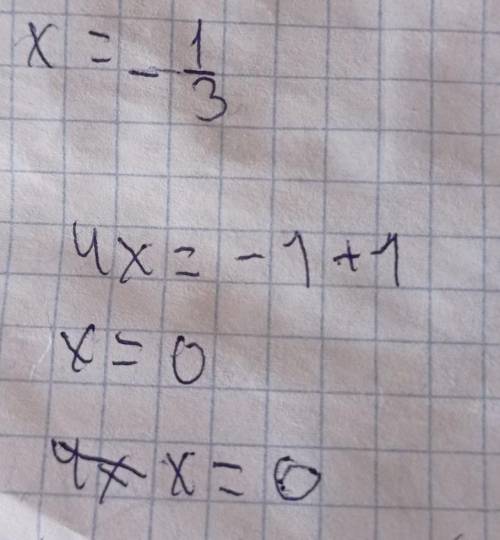 x = -1/3
4x = -1+1
x = 0
4x x = 0